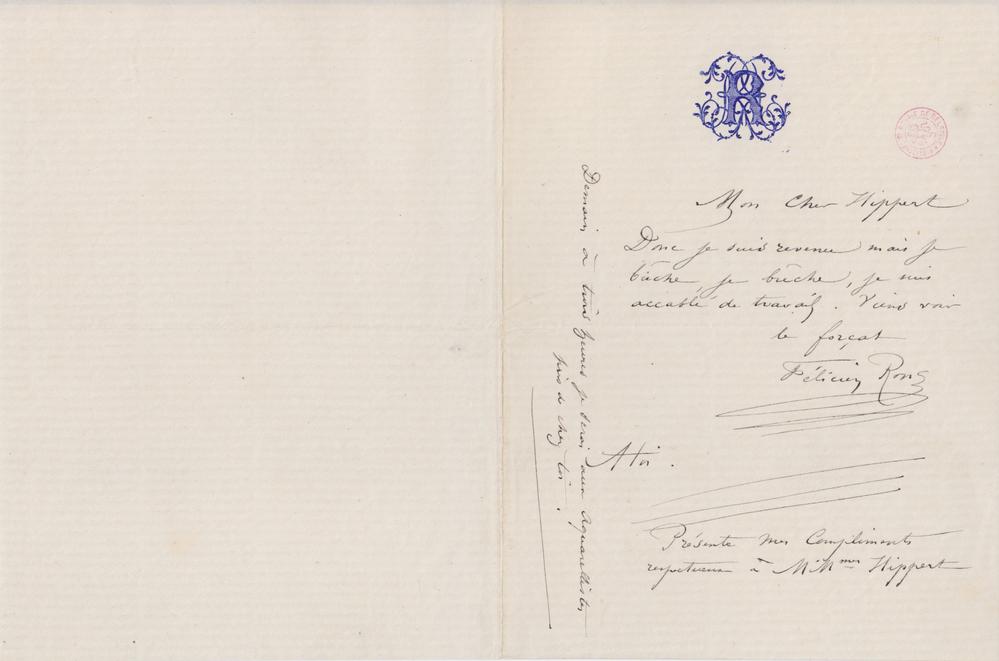 R
Mon cher Hippert
Donc je suis revenu mais je
bûche, je bûche, je suis
accablé de travail. Viens voir
le forçat
Félicien Rops
A toi.
Présente mes compliments
respectueux à MMmes Hippert
Demain à trois heures je serai aux Aquarellistes
près de chez toi.